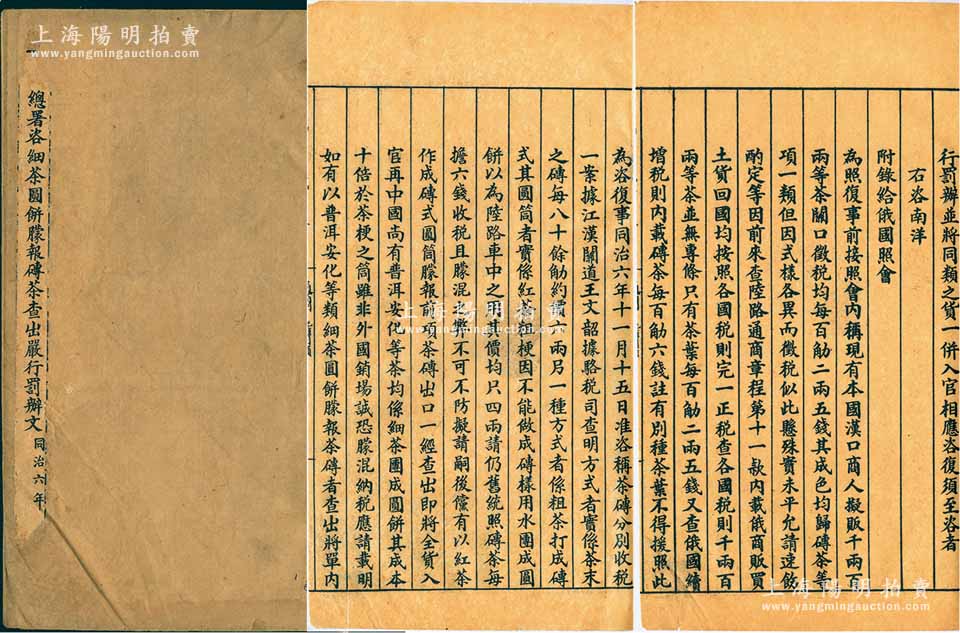 上海陽明拍賣
www.yangmingauction.com
總署咨細茶圓餅朦報磚茶查出嚴行罰辦文 同治六年
上海陽明拍賣
www.yangmingauction.com
為咨復事同治六年十一月十五日准咨稱茶磚分別收稅
一案據江漢關道王文韶據駱稅司查明方式者實係茶末
之磚每八十餘觔約價 兩另一種方式者係粗茶打成磚
式其圓筒者實係紅茶 梗因不能做成磚樣用水團成圓
餅以為陸路車中之用 價均只四兩請仍舊統照磚茶每
擔六錢收稅且朦混 弊不可不防擬請嗣後儻有以紅茶
作成磚式圓筒朦報前項茶磚出口一經查出即將全貨入
官再中國尚有普洱安化等茶均係細茶團成圓餅其成本
十倍於茶梗之筒雖非外國銷場誠恐朦混納稅應請載明
如有以普洱安化等類細茶圓餅朦報茶磚者查出將單內
行罰辦並將同類之貨一併入官相應咨復須至咨者
右咨南洋
附錄給俄國照會
為照復事前接照會內稱現有本國漢口商人擬販千兩百
兩等茶關口徵稅均每百觔二兩五錢其成色均歸磚茶等
項一類但因式樣各異而徵稅似此懸殊實未平允請速飭
酌定等因前來查陸路通商章程第十一款內載俄商販買
土貨回國均按照各國稅則完一正稅查各國稅則千兩百
兩等茶並無專條只有茶葉每百觔二兩五錢又查俄國續
增稅則內載磚茶每百觔六錢註有別種茶葉不得援照此
上海陽明拍賣
www.yangmingauction.com